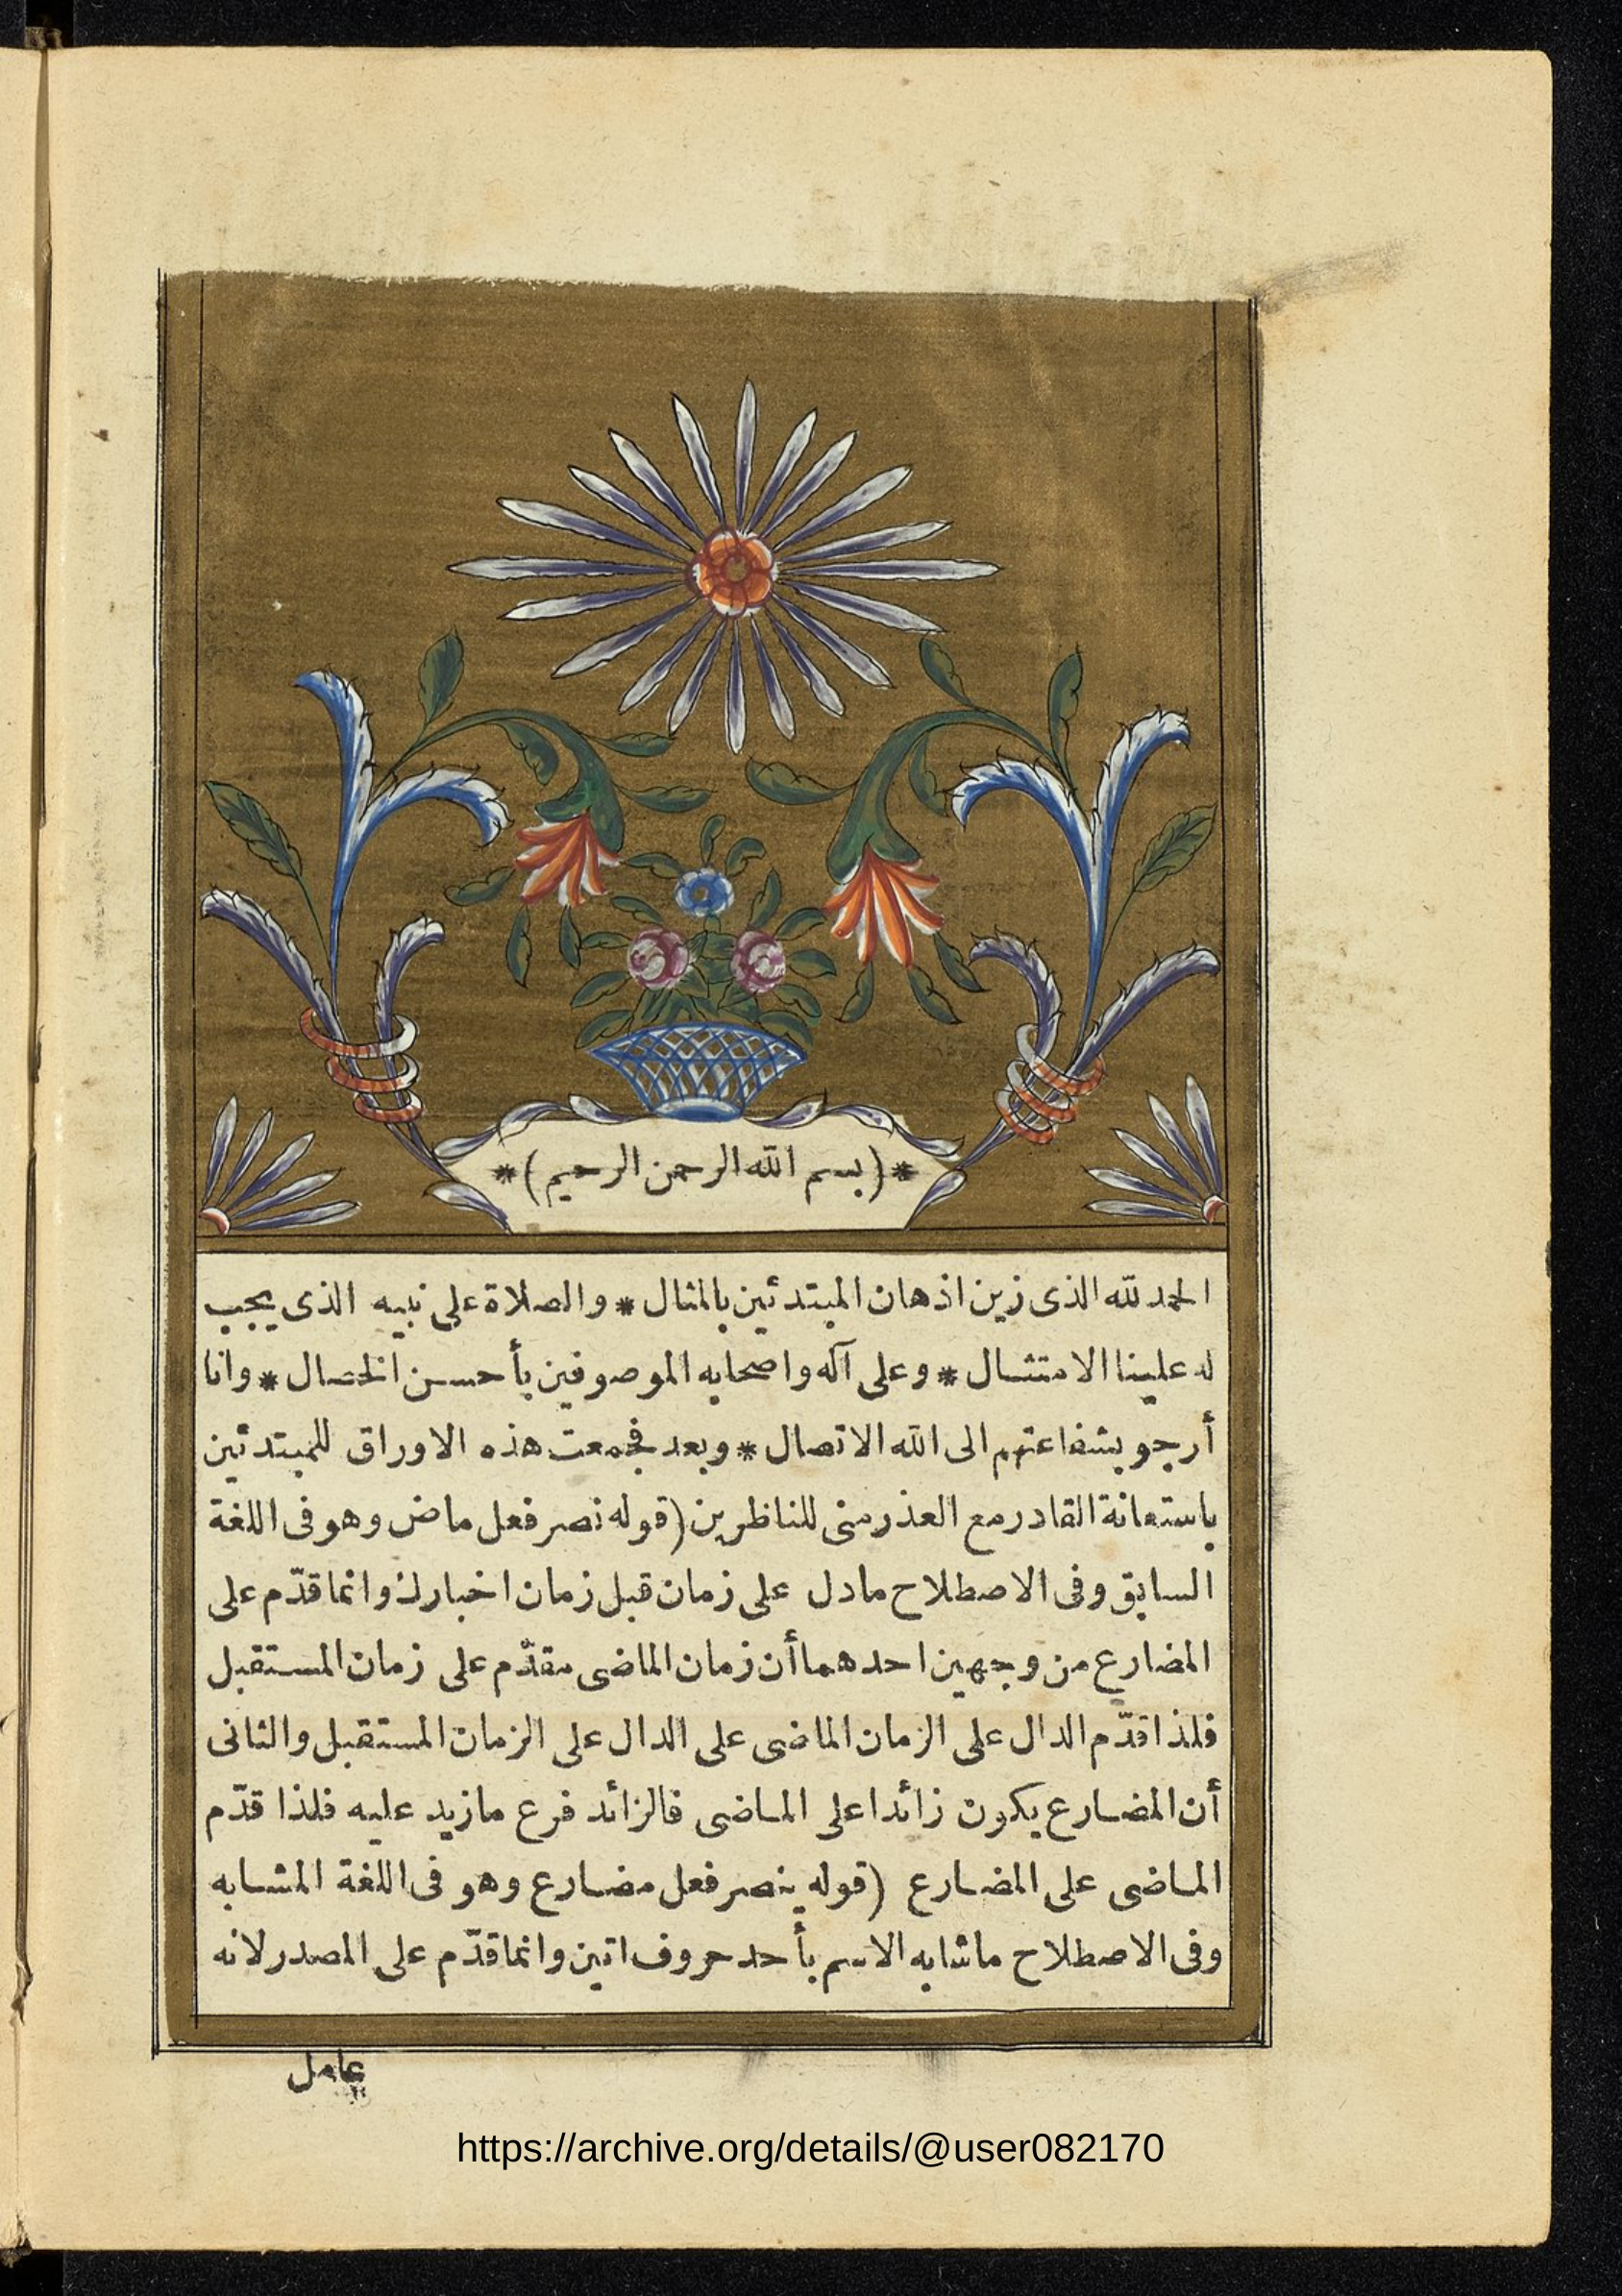 *(بسم الله الرحمن الرحيم)*
الحمد لله الذى زين اذهان المبتدئين بالمثال * والصلاة على نبيه الذى يجب
له علينا الامتثال * وعلى آله واصحابه الموصوفين بأحسن الخصال * وانا
أرجو بشفاعتهم الى الله الاتصال * وبعد فجمعت هذه الاوراق للمبتدئين
باستعانة القادر مع العذر منى للناظرين (قوله نصر فعل ماض وهو فى اللغة
السابق وفى الاصطلاح مادل على زمان قبل زمان اخبارك وانما قدّم على
المضارع من وجهين احدهما أن زمان الماضى مقدّم على زمان المستقبل
فلذا قدّم الدال على الزمان الماضى على الدال على الزمان المستقبل والثانى
أن المضارع يكون زائدا على الماضى فالزائد فرع مازيد عليه فلذا قدّم
الماضى على المضارع (قوله ينصر فعل مضارع وهو فى اللغة المشابه
وفى الاصطلاح ماشابه الاسم بأحد حروف اتين وانما قدّم على المصدر لانه
عامل
https://archive.org/details/@user082170